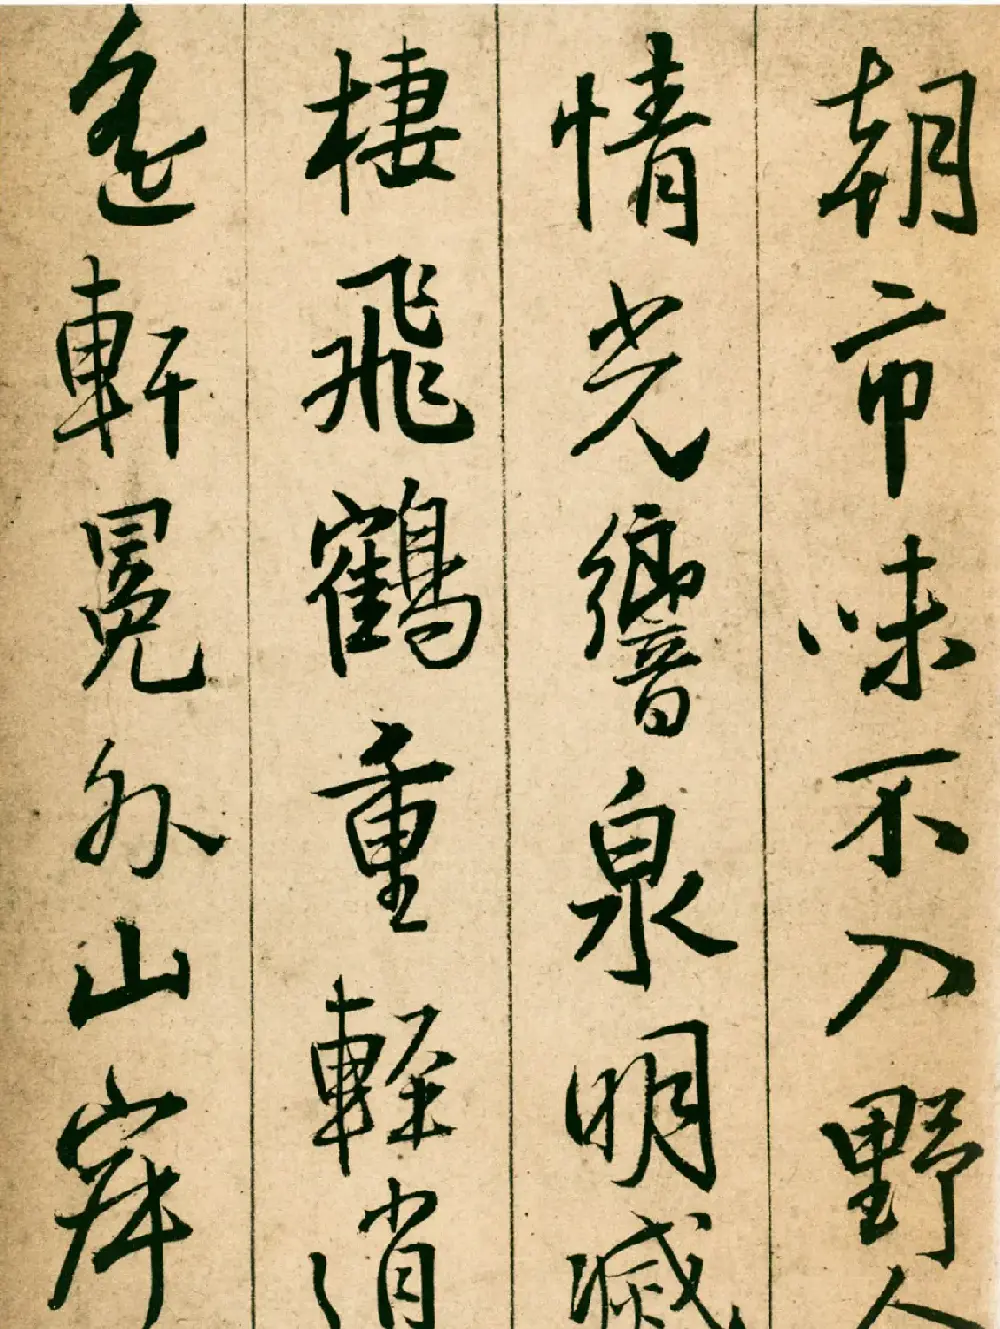 朝市味不入野人
情光響泉明滅
棲飛鶴重輕消
遙軒冕外山岸